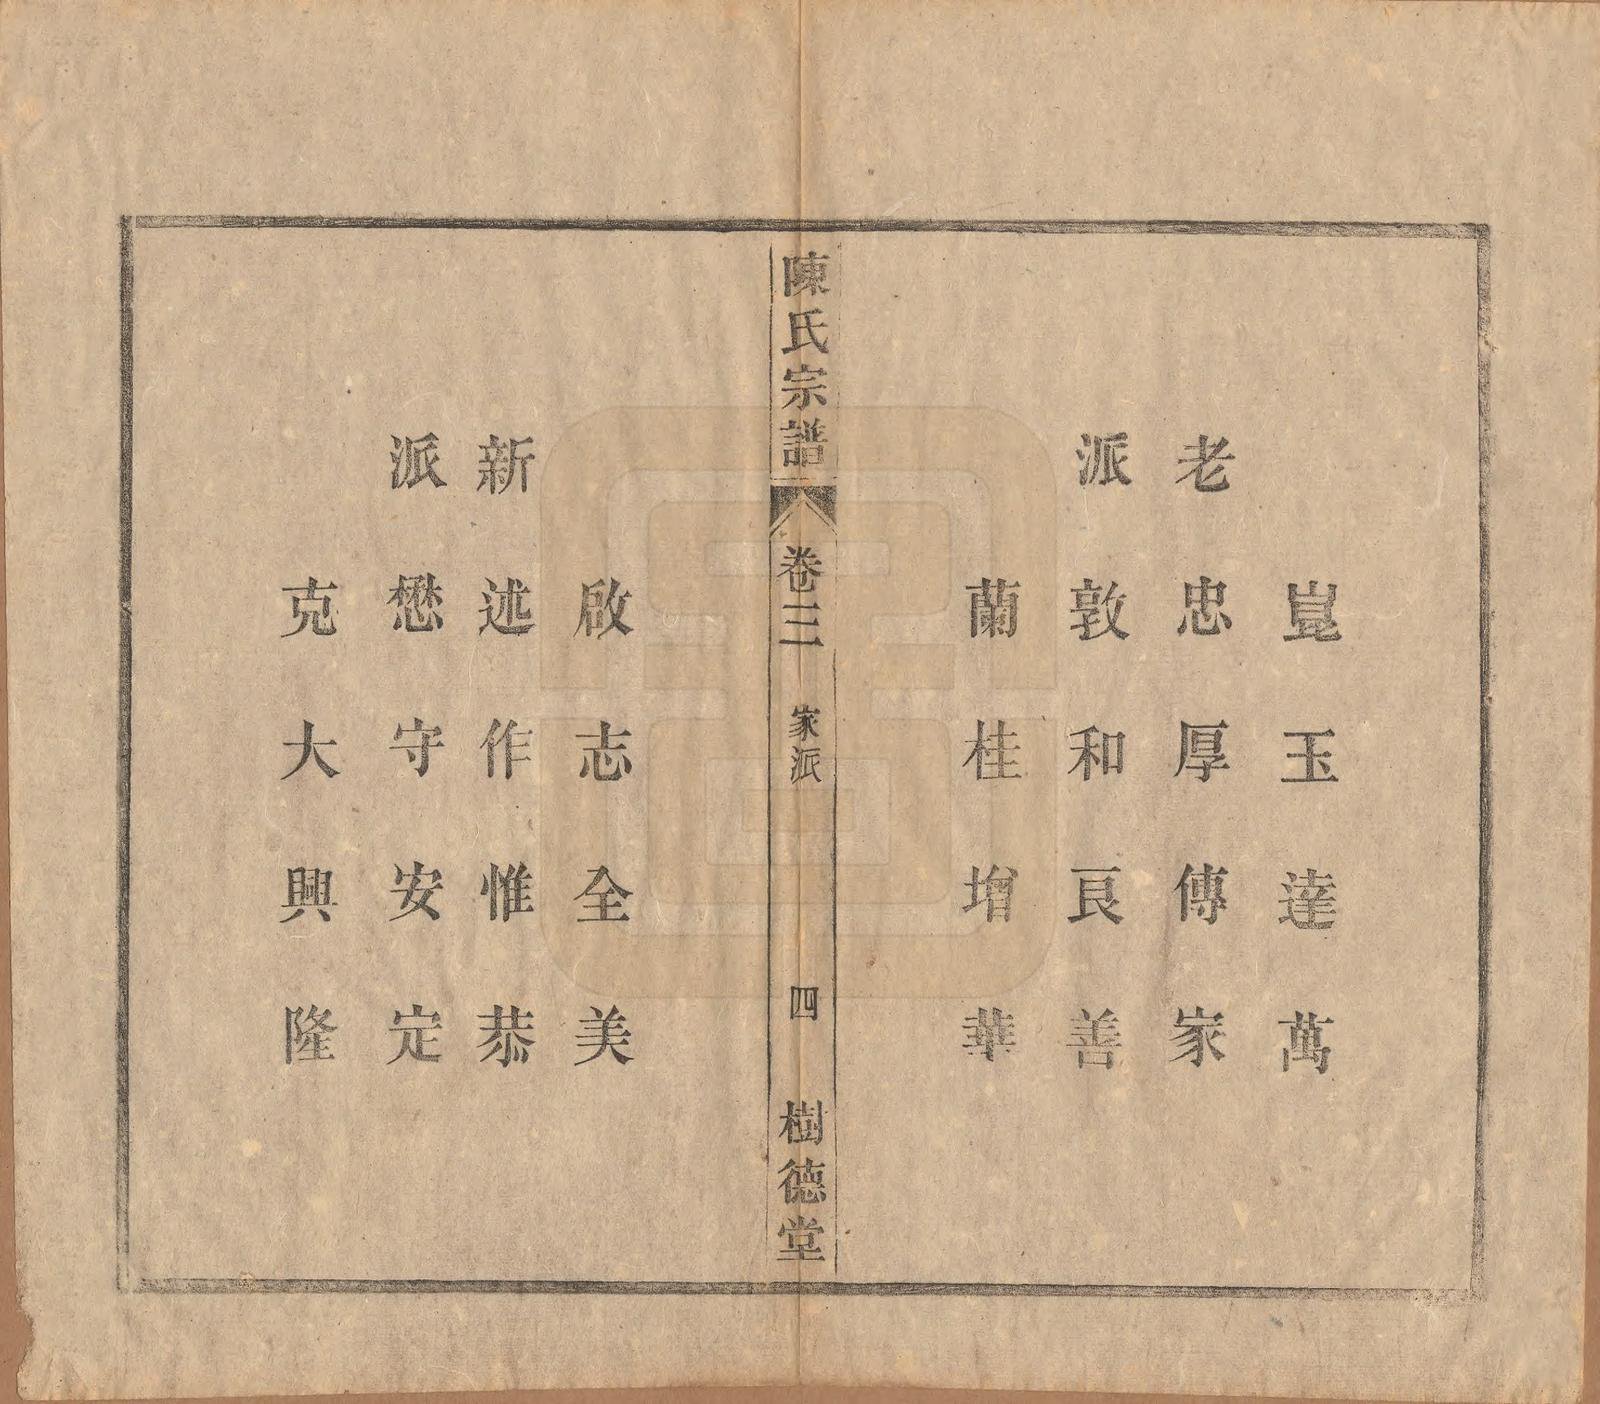 崑玉達萬
老 忠厚傳家
派 敦和良善
蘭桂增華
陳氏宗譜 卷三 家派 四 樹德堂
啟志全美
新 述作惟恭
派 懋守安定
克大興隆